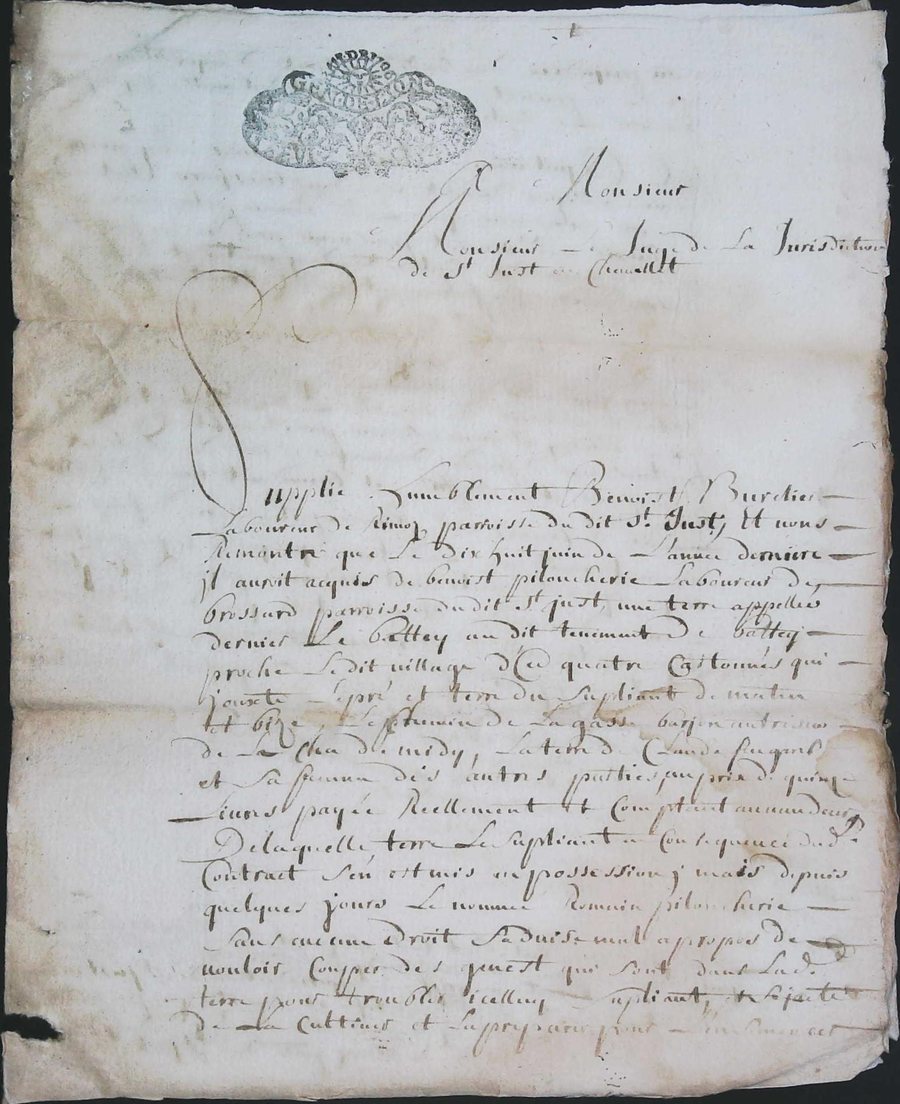 GN DE LYON
Monsieur
Monsieur Le Juge de La Jurisdiction
de St Just en Chevallet
Supplie humblement Benoist Burelier
Laboureur de Rimoz parroisse du dit St Just, Et vous
Remontre que Le dix huit juin de L'année derniere
jl auroit acquis de benoist piloncherie Laboureur de
brossard parroisse dudit St just, une terre appellée
dernier Le battey au dit tenement De battey
proche Ledit village D'Ea quatre Cartonnés qui
jouxte Le pré et terre du Supliant de matin
et bize, Le chemin de La
de La Cha de midy, La terre de Claude
et Sa femme des autres parties, au prix de quinze
Livres payée Reellement et Comptant au vandeur
Delaquelle terre Le Supliant en Consequence dud.
Contract s'en est mis en possession, mais depuis
quelques jours Le nommé Romain piloncherie
sans aucune droit S'advise mal apropos de
vouloir Couper des qui sont dans Lad.
terre pour troubler icelluy Supliant, et
de La Cultiver et La preparer pour